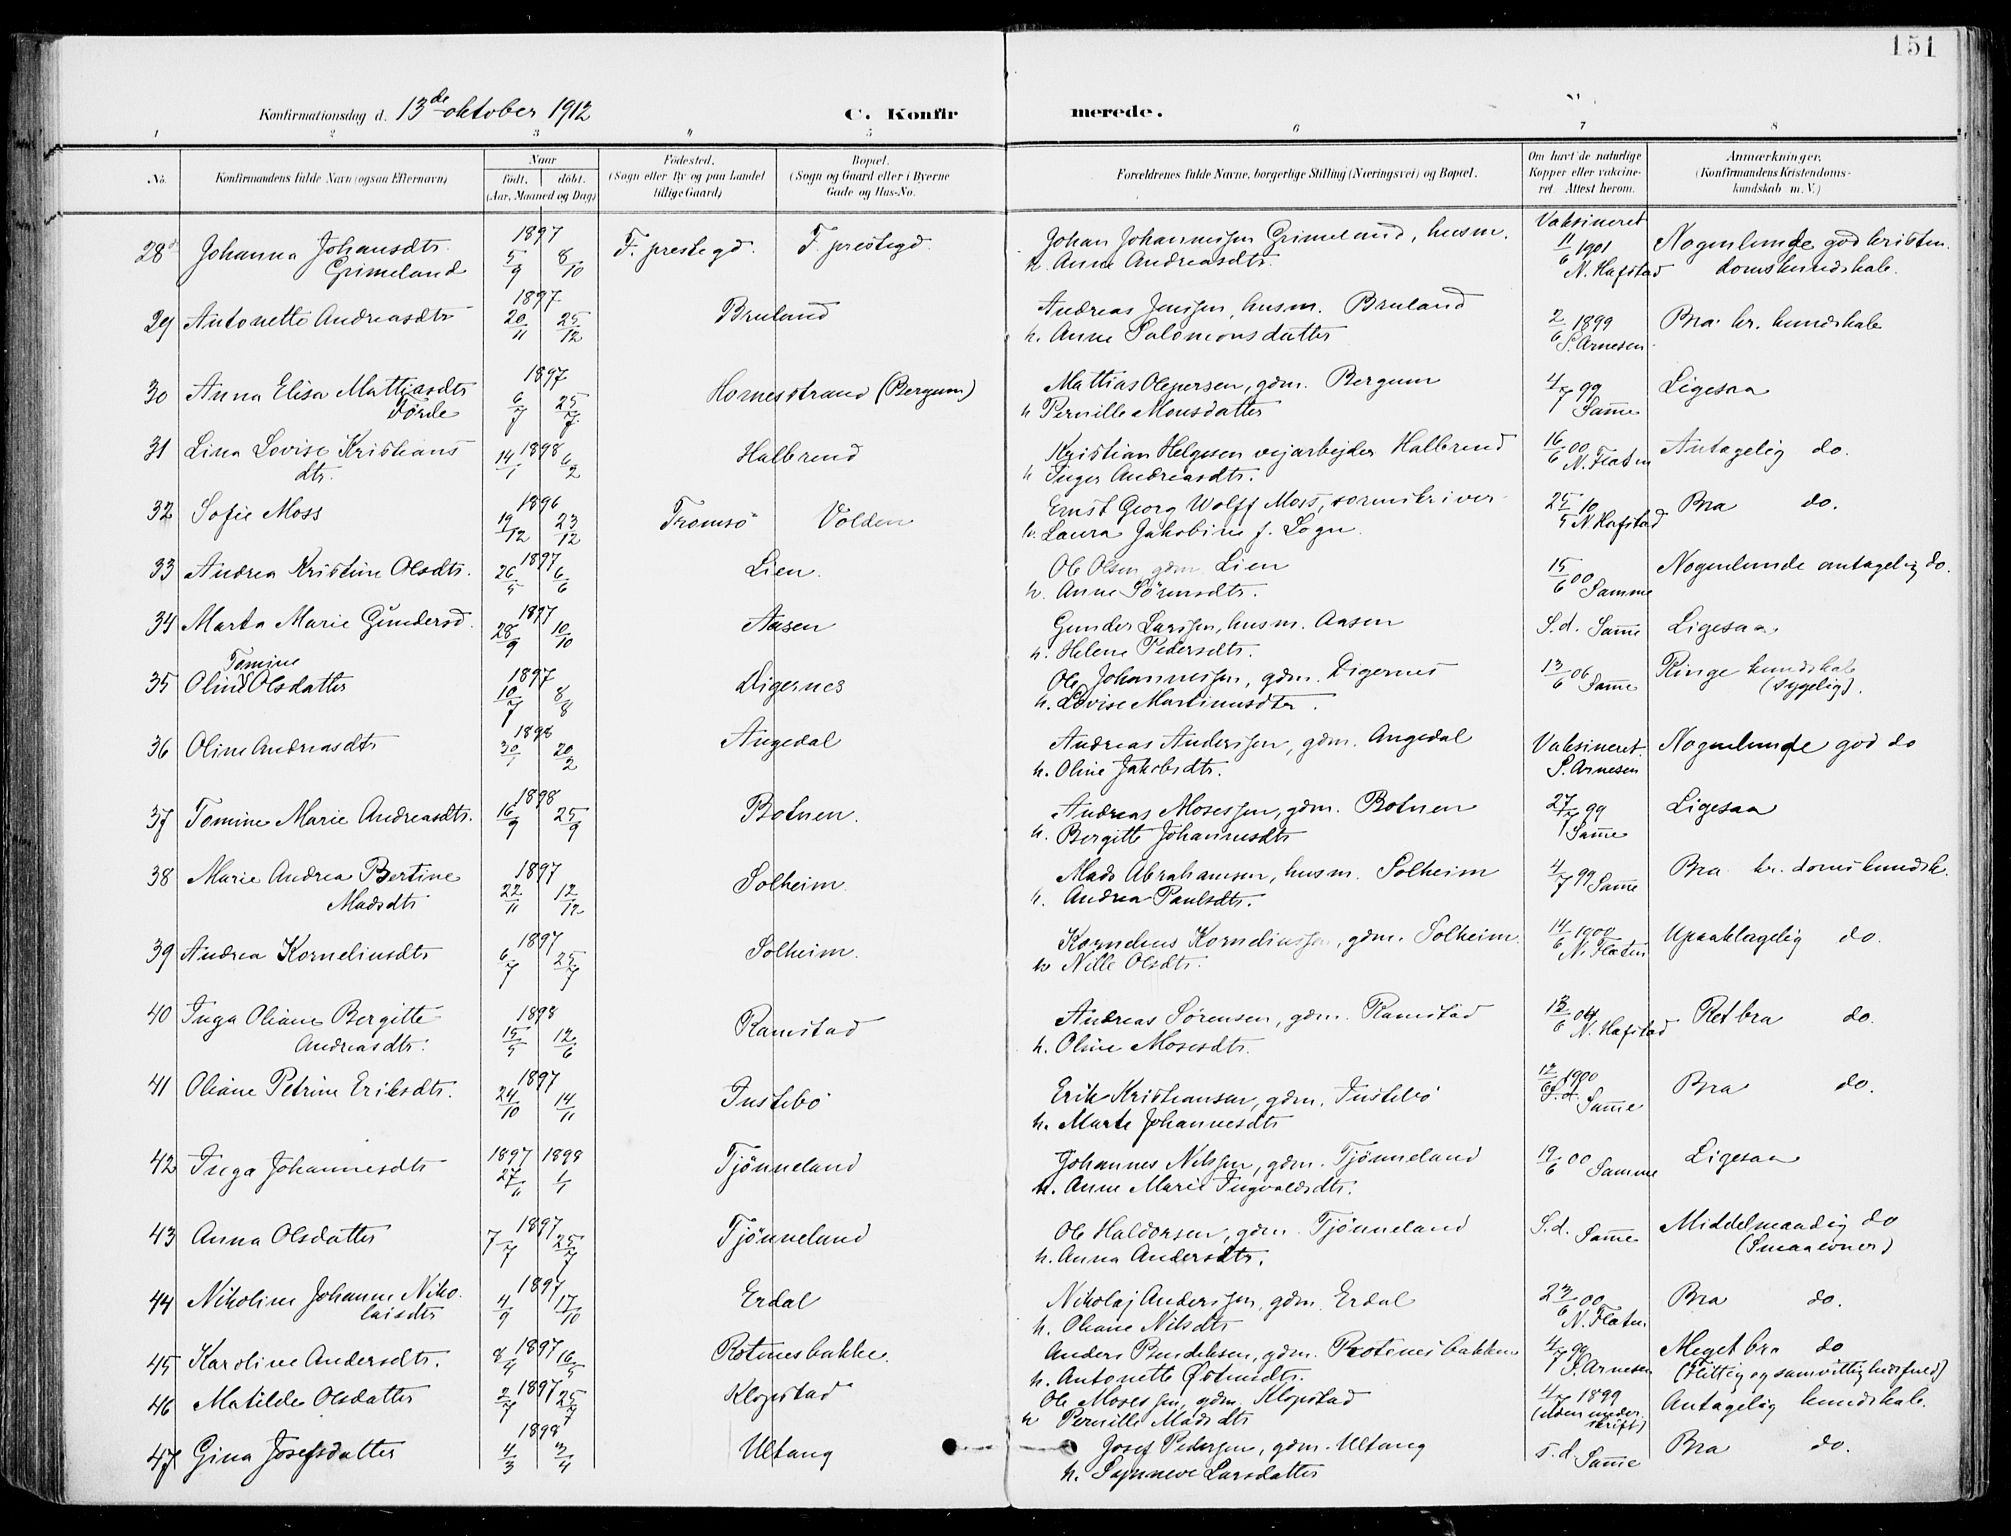 151
Konfirmationsdag d. 13de oktober 1912 C. Konfirmerede.
1 2 3 4 5 6 7 8
No. Konfirmandens fulde Navn (ogsaa Efternavn) Naar født, døbt. (Aar, Maaned og Dag) Fødested. (Sogn eller By og paa Landet tillige Gaard) Bopæl. (Sogn og Gaard eller i Byerne Gade og Hus-No. Forældrenes fulde Navne, borgerlige Stilling (Næringsvei) og Bopæl. Om havt de naturlige Kopper eller vakcineret. Attest herom. Anmærkninger. (Konfirmandens Kristendomskundskab m. V.)
28 Johanna Johansdtr. 1897 5/9 8/10 F. prestegd. F. prestegd. Johan Johannessen Grimeland, husm. Vaksineret 11/6 1901 Nogenlunde god kristen
Grimeland h. Anne Andreasdtr. N. Hafstad domskundskab.
29 Antonette Andreasdtr 1897 20/11 25/12 Bruland Andreas Jenssen, husm. Bruland 2/6 1899 Bra kr. kundskab
h. Anne Salomonsdatter S. Arnesen
30 Anna Elisa Mattiasdtr 1897 6/7 25/7 Hornesstrand (Bergum) Mattias Olepersen, gdm. Bergum 4/7 99 Ligesaa
Førde h Pernille Monsdatter Samme
31 Lina Lovise Kristians 1898 14/1 6/2 Halbrend Kristian Helgesen vejarbejder Halbrend 16/6 00 Antagelig do.
dtr. h Inger Andreasdtr. N. Flaten
32 Sofie Moss 1896 19/12 23/12 Tromsø Volden Ernst Georg Wolff Moss, sorenskriver 25/5 10 Bra do.
h. Laura Jakobine f. Logn. N Hafstad
33 Andrea Kristine Olsdtr. 1897 26/5 6/6 Lien. Ole Olsen gdm Lien 15/6 00 Nogenlunde antagelig do.
h. Anne Sørensdtr. Samme
34 Marta Marie Gundersd. 1897 28/9 10/10 Aasen Gunder Larssen, husm. Aasen S.d. Samme Ligesaa
h. Helene Pedersdtr.
Tomine
35 Oline Olsdatter 1897 10/7 8/8 Digernes Ole Johannessen, gdm. Digernes 13/6 06 Samme Ringe kundskab
h. Lovise Martinusdtr. (sygelig).
36 Oline Andreasdtr 1898 30/1 20/2 Angedal Andreas Anderssen, gdm. Angedal Vaksineret Nogenlunde god do
h. Oline Jakobsdtr. S. Arnesen
37 Tomine Marie Andreasdtr. 1898 16/9 25/9 Botnen. Andreas Mosessen, gdm. Botnen 27/7 99 Ligesaa
h. Bergitte Johannesdtr Samme
38 Marie Andrea Bertine 1897 22/11 12/12 Solheim. Mads Abrahamsen, husm. Solheim 4/7 99 Samme Bra kr. domskundsk.
Madsdtr h. Andrea Paulsdtr.
39 Andrea Korneliusdtr 1897 6/7 25/7 Solheim. Kornelius Korneliussen, gdm. Solheim. 14/6 1900 Upaaklagelig do.
h Nille Olsdtr. N. Flaten
40 Inga Oliane Bergitte 1898 15/5 12/6 Ramstad Andreas Sørensen, gdm. Ramstad 13/6 04 Ret bra do.
Andreasdtr. h. Oline Mosesdtr. N. Hafstad
41 Oliane Petrine Eriksdtr. 1897 24/10 14/11 Instebø Erik Kristiansen, gdm. Instebø 12/6 1900 Bra do.
h. Marte Johannesdtr S.d. Samme
42 Inga Johannesdtr 1897 27/11 1898 1/1 Tjønneland Johannes Nilssen, gdm. Tjønneland 19/6 00 Samme Ligesaa
h. Anne Marie Ingvaldsdtr.
43 Anna Olsdatter 1897 7/7 25/7 Tjønneland Ole Haldorsen, gdm. Tjønneland S.d. Samme Middelmaadig do
h. Anna Andersdtr. (Smaa evner)
44 Nikoline Johanne Niko- 1897 4/9 17/10 Erdal Nikolaj Anderssen, gdm. Erdal 23/6 00 Bra do.
laisdtr h. Oliane Nilsdtr N. Flaten
45 Karoline Andersdtr. 1897 8/4 16/5 Rotnesbakke. Anders Bendiksen, gdm. Rotenesbakken 4/7 99 Meget bra do
h. Antonette Østendtr. S. Arnesen (Flittig og samvittighedsfuld)
46 Matilde Olsdatter 1897 2/7 25/7 Klopstad Ole Mosessen, gdm. Klopstad 4/7 1899 Antagelig kundskab.
h Pernille Madsdtr (uden underskrift)
47 Gina Josefsdatter 1898 4/3 3/4 Ultang Josef Pedersen, gdm. Ultang s. d. Samme Bra do.
h. Synneve Larsdatter